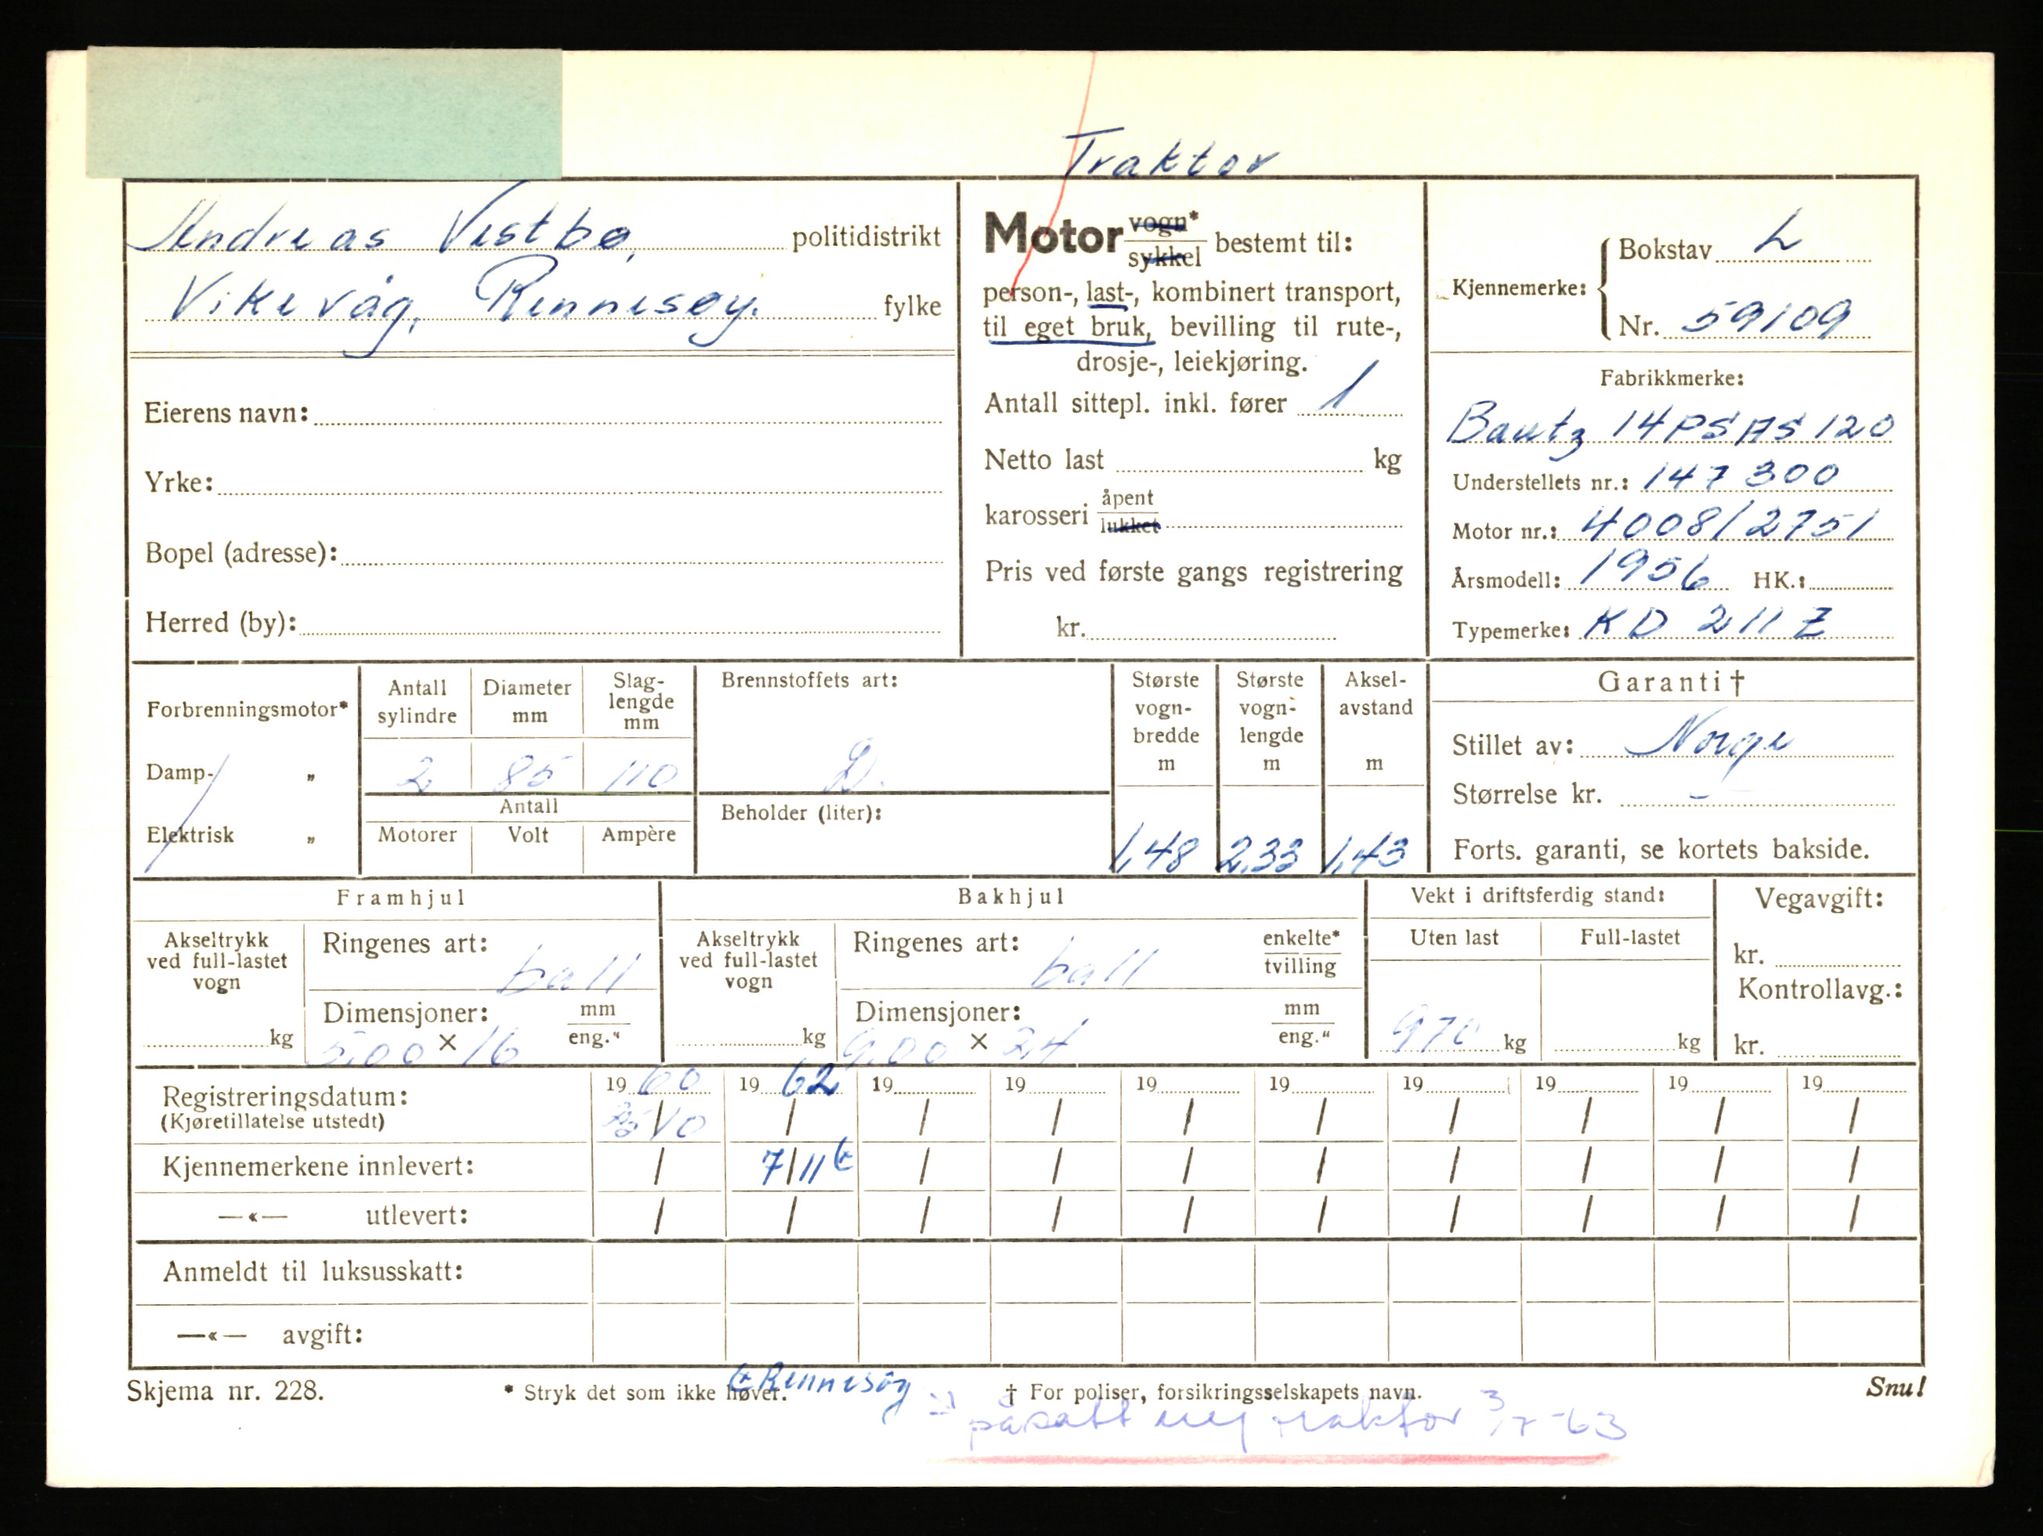 Traktor
Andreas Vestbø, politidistrikt
Vikevåg, Rennesøy. fylke
Eierens navn:
Yrke:
Bopel (adresse):
Herred (by):
Motor vogn* sykkel bestemt til:
person-, last-, kombinert transport,
til eget bruk, bevilling til rute-,
drosje-, leiekjøring.
Antall sittepl. inkl. fører 1
Netto last kg
karosseri åpent lukket
Pris ved første gangs registrering
kr.
Kjennemerke: Bokstav L
Nr. 59109
Fabrikkmerke:
Bautz 14 PS AS 120
Understellets nr.: 147 300
Motor nr.: 4008/2751
Årsmodell: 1956 HK.:
Typemerke: KD 211 Z
Forbrenningsmotor*
Damp- „
Elektrisk „
Antall sylindre Diameter mm Slaglengde mm
2 85 110
Antall
Motorer Volt Ampère
Brennstoffets art:
D.
Beholder (liter):
Største vognbredde m Største vognlengde m Akselavstand m
1,48 2,33 1,43
Garanti †
Stillet av: Norge
Størrelse kr. -
Forts. garanti, se kortets bakside.
Framhjul
Akseltrykk ved full-lastet vogn kg
Ringenes art: ball
Dimensjoner: mm eng."
5,00 × 16
Bakhjul
Akseltrykk ved full-lastet vogn kg
Ringenes art: ball enkelte* tvilling
Dimensjoner: mm eng."
9,00 × 24
Vekt i driftsferdig stand:
Uten last Full-lastet
970 kg kg
Vegavgift:
kr.
Kontrollavg.:
kr.
Registreringsdatum: 1960 1962 19 19 19 19 19 19 19 19
(Kjøretillatelse utstedt) / / / / / / / / /
Kjennemerkene innlevert: / 7/11 / / / / / / / /
—«— utlevert: / / / / / / / / / /
Anmeldt til luksusskatt:
—«— avgift:
Skjema nr. 228. * Stryk det som ikke høver. Rennesøy † For poliser, forsikringsselskapets navn. Snu!
påsatt ny traktor 3/7-63